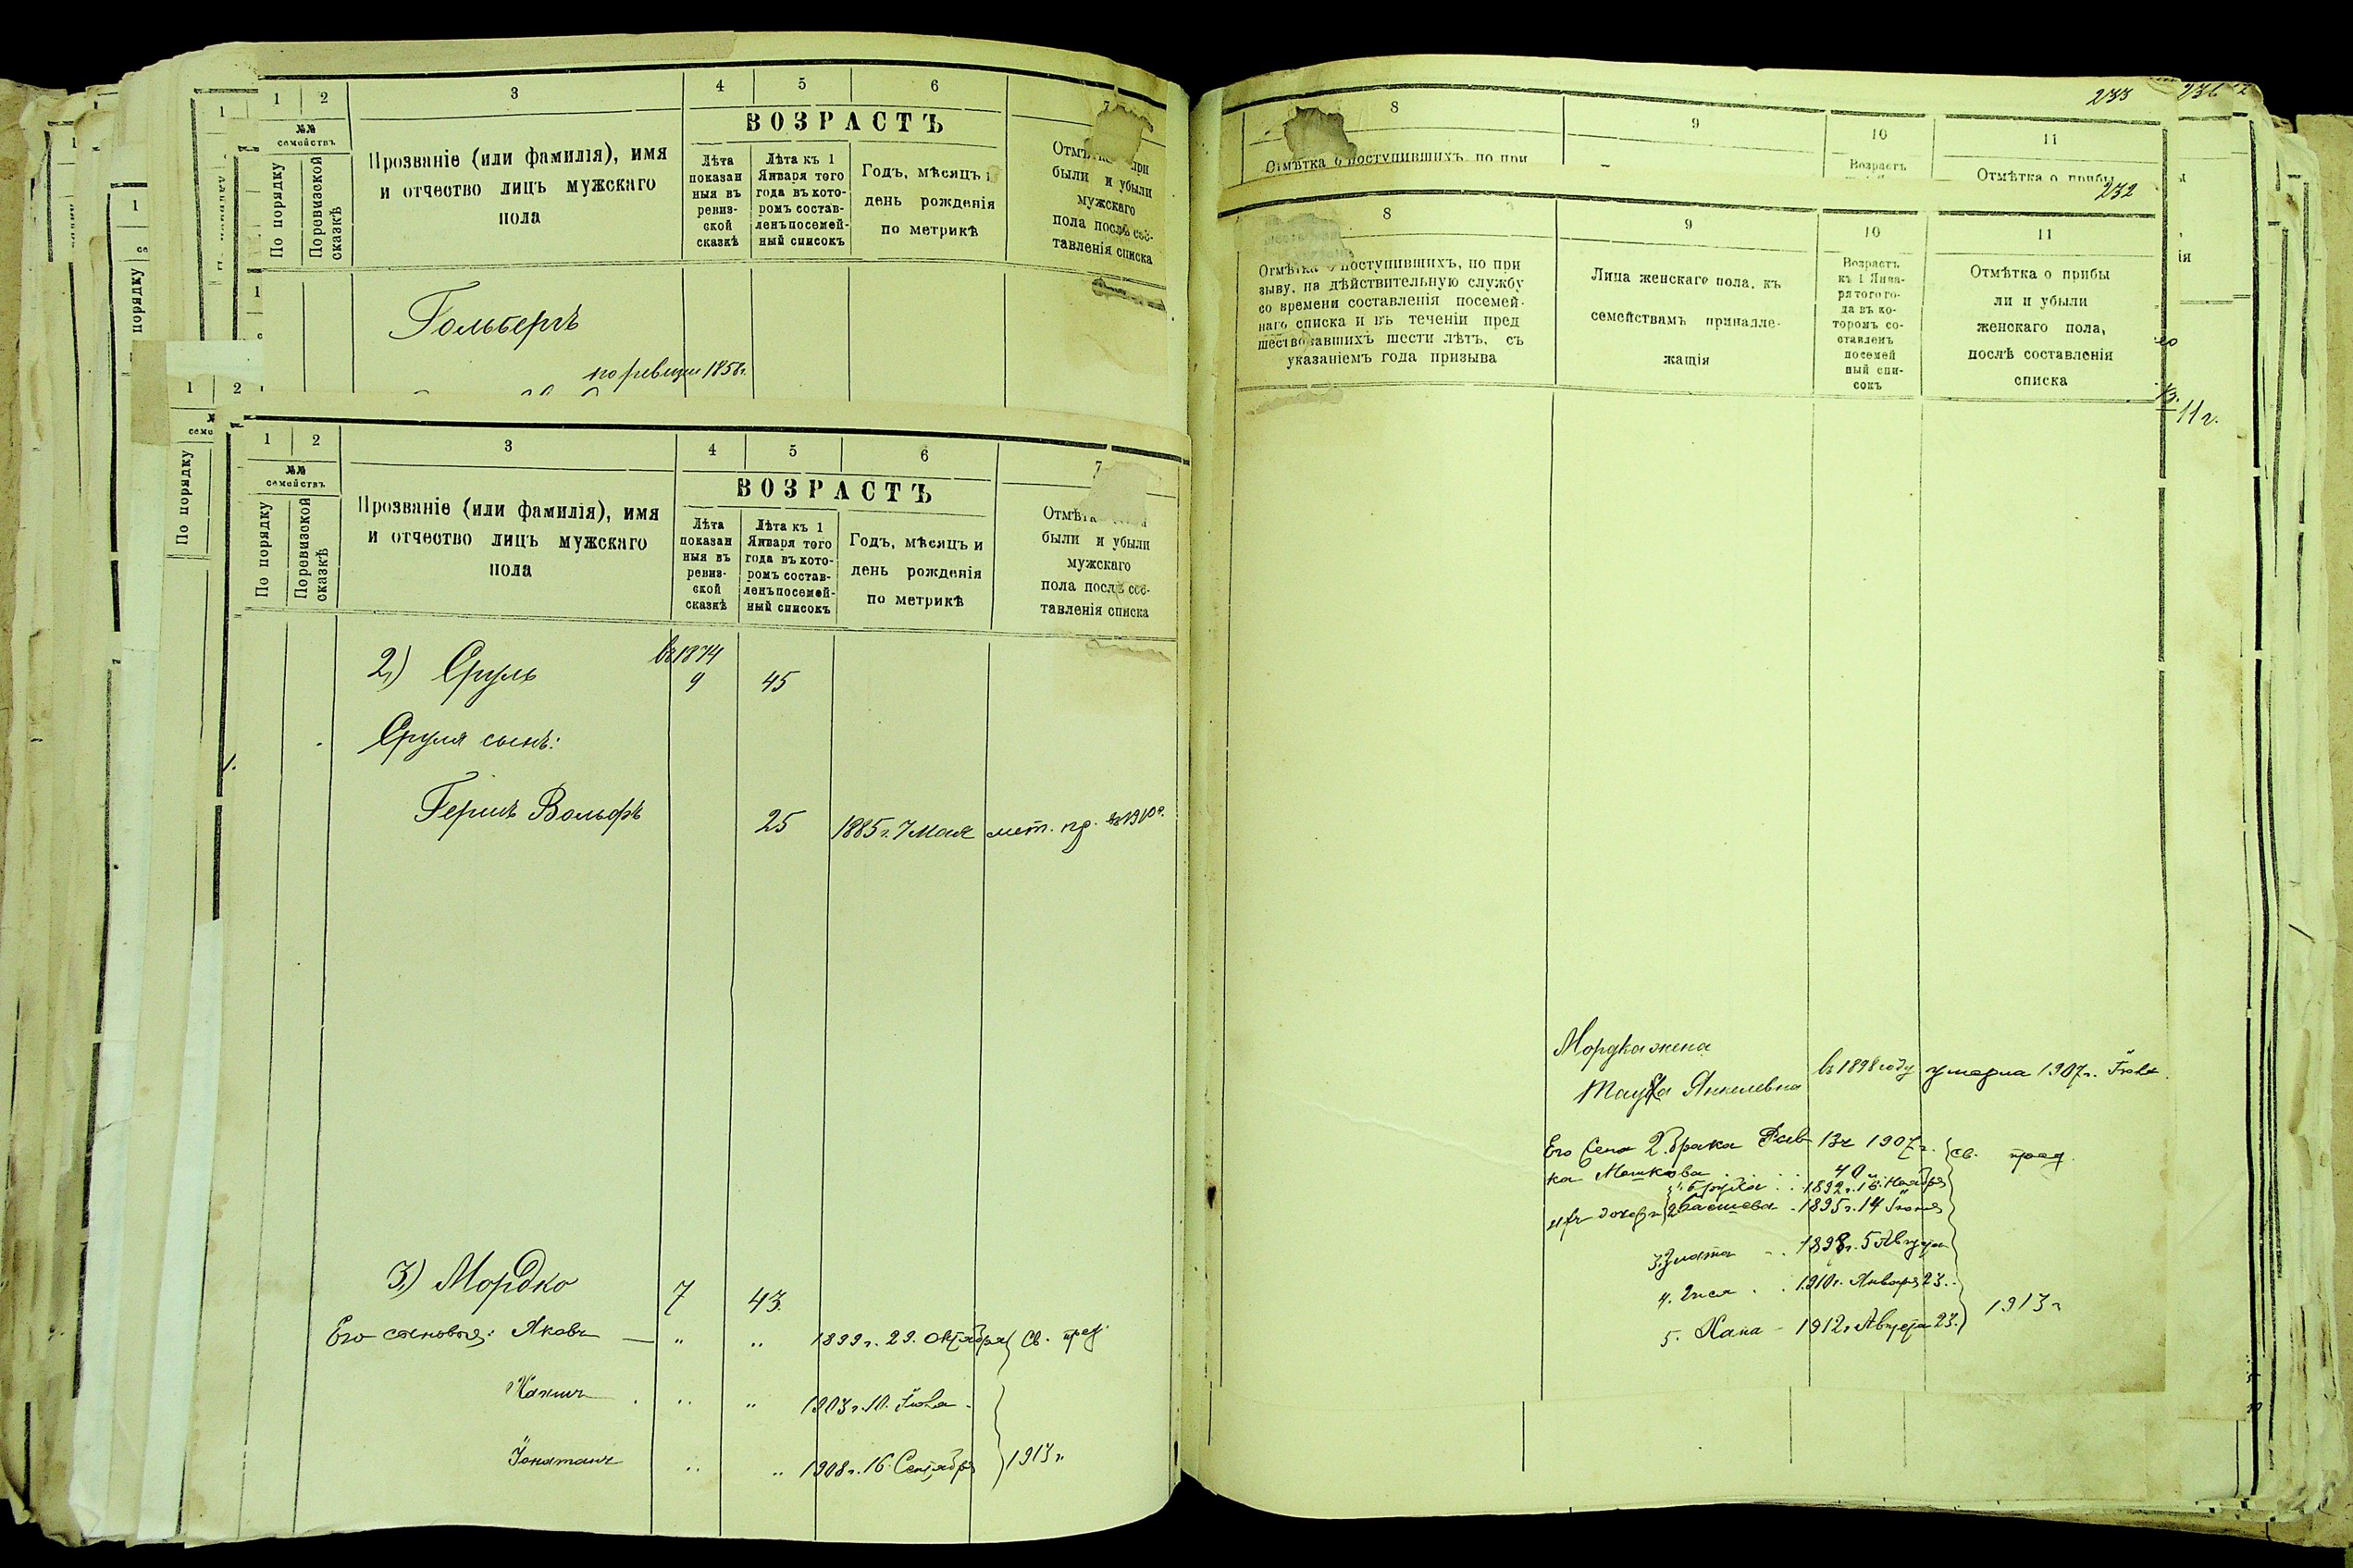 1 2 3 4 5 6
№№ семействъ
По порядку
По ревизской сказкѣ
Прозваніе (или фамилія), имя
и отчество лицъ мужскаго
пола
ВОЗРАСТЪ
Лѣта
показан
ныя въ
ревиз-
ской
сказкѣ
Лѣта къ 1
Января того
года въ кото-
ромъ состав-
ленъ посемей-
ный списокъ
Годъ, мѣсяцъ и
день рожденія
по метрикѣ
были и убыли
мужскаго
пола послѣ сос-
тавленія списка
Гольбергъ
по ревизіи 1858 г.
1 2 3 4 5 6 7
№№
семействъ
По порядку
По ревизской
сказкѣ
Прозваніе (или фамилія), имя
и отчество лицъ мужскаго
пола
ВОЗРАСТЪ
Лѣта
показан
ныя въ
ревиз-
ской
сказкѣ
Лѣта къ 1
Января того
года въ кото-
ромъ состав-
ленъ посемей-
ный списокъ
Годъ, мѣсяцъ и
день рожденія
по метрикѣ
были и убыли
мужскаго
пола послѣ сос-
тавленія списка
2) Сруль въ 1874 9 45
Сруля сынъ:
Гершъ Вольфъ 25 1885 г. 7 Мая мет. пр. въ 1910 г.
3) Мордко 7 43
Его сыновья: Яковъ — " " 1899 г. 29. Октября Св. пред.
" " 1903 г. 10. Іюля
Іонатанъ " " 1908 г. 16. Сентября 1913 г.
233
8 9 10 11
Отмѣтка о поступившихъ, по при
Возрастъ
Отмѣтка о прибы
232
8 9 10 11
Отмѣтка о поступившихъ, по при
зыву, на дѣйствительную службу
со времени составленія посемей-
наго списка и въ теченіи пред
шествовавшихъ шести лѣтъ, съ
указаніемъ года призыва
Лица женскаго пола, къ
семействамъ принадле-
жащія
Возрастъ
къ 1 Янва-
ря того го-
да въ ко-
торомъ со-
ставленъ
посемей
ный спи-
сокъ
Отмѣтка о прибы
ли и убыли
женскаго пола,
послѣ составленія
списка
11 г.
Мордка жена
Тауба Янкелевна въ 1898 году умерла 1907 г. Іюля
Его жена 2. брака 1907 г. Св. пред.
ка Мошкова 40
1892 г. 16. Ноября
ихъ дочери 2 Башева 1895 г. 14 Іюня
3. Злата 1898 г. 5 Августа
4. 1910 г. Января 23.
5. Хана - 1912 г. Августа 23. 1913 г.